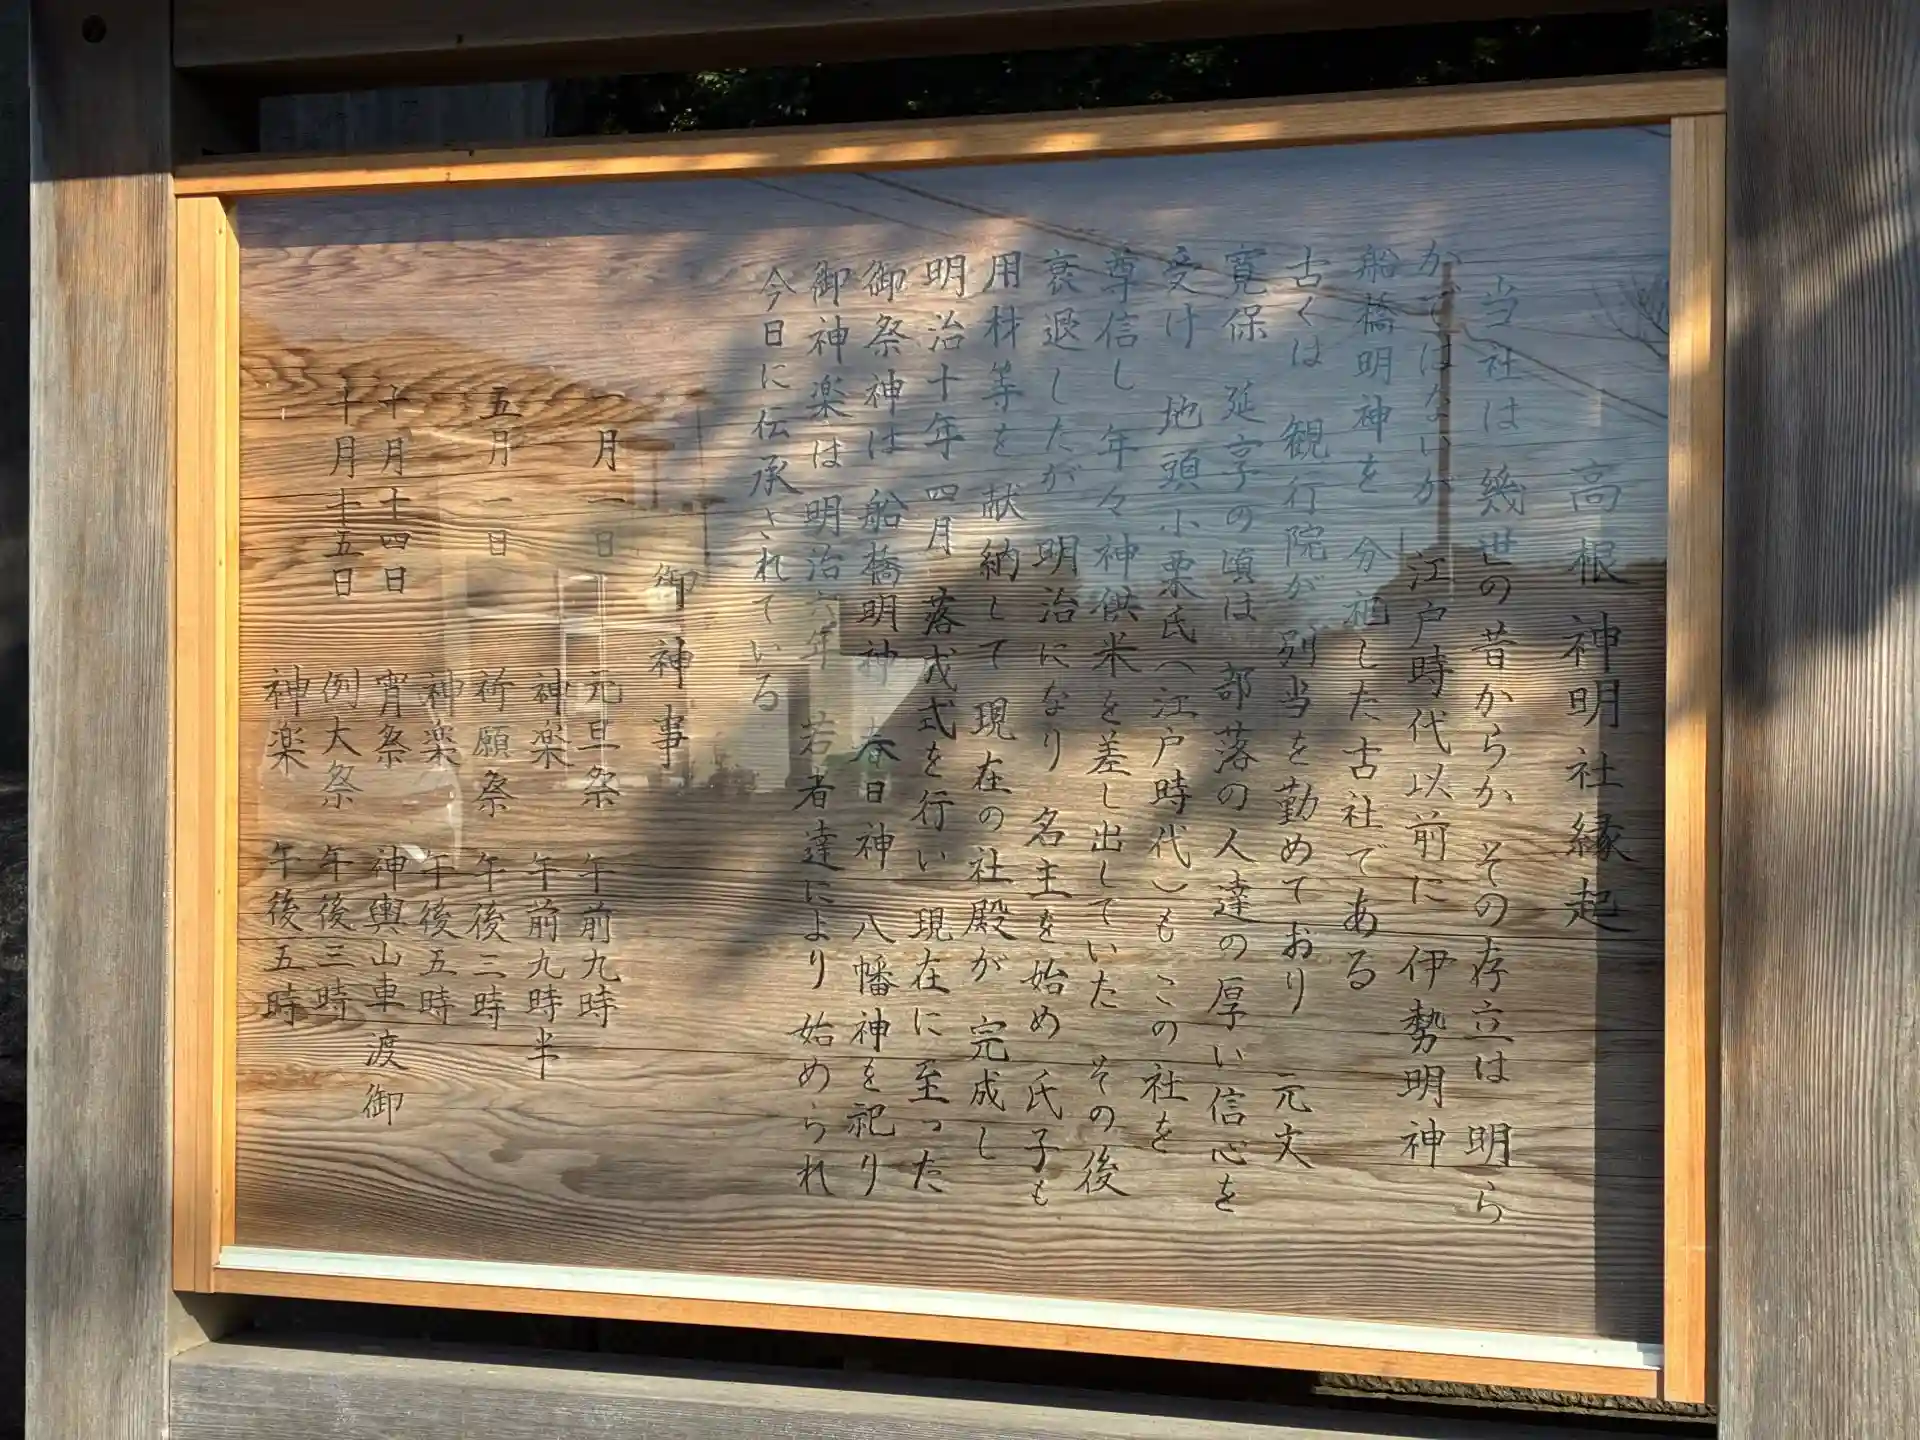 高根神明社縁起
当社は幾世の昔からか その存立は明ら
かではないが 江戸時代以前に 伊勢明神
船橋明神を 分祀した古社である
古くは 観行院が 別当を勤めており 元文
寛保 延享の頃は 部落の人達の厚い信心を
受け 地頭小栗氏(江戸時代)も この社を
尊信し 年々神供米を差し出していた その後
衰退したが 明治になり 名主を始め 氏子も
用材等を 献納して 現在の社殿が 完成し
明治十年 四月 落成式を行い 現在に至った
御祭神は 船橋明神 春日神 八幡神を祀り
御神楽は 明治六年 若者達により 始められ
今日に伝承されている
御神事
一月一日 元旦祭 午前九時
神楽 午前九時半
五月一日 祈願祭 午後二時
神楽 午後五時
十月十四日 宵祭 神輿山車渡御
十月十五日 例大祭 午後三時
神楽 午後五時